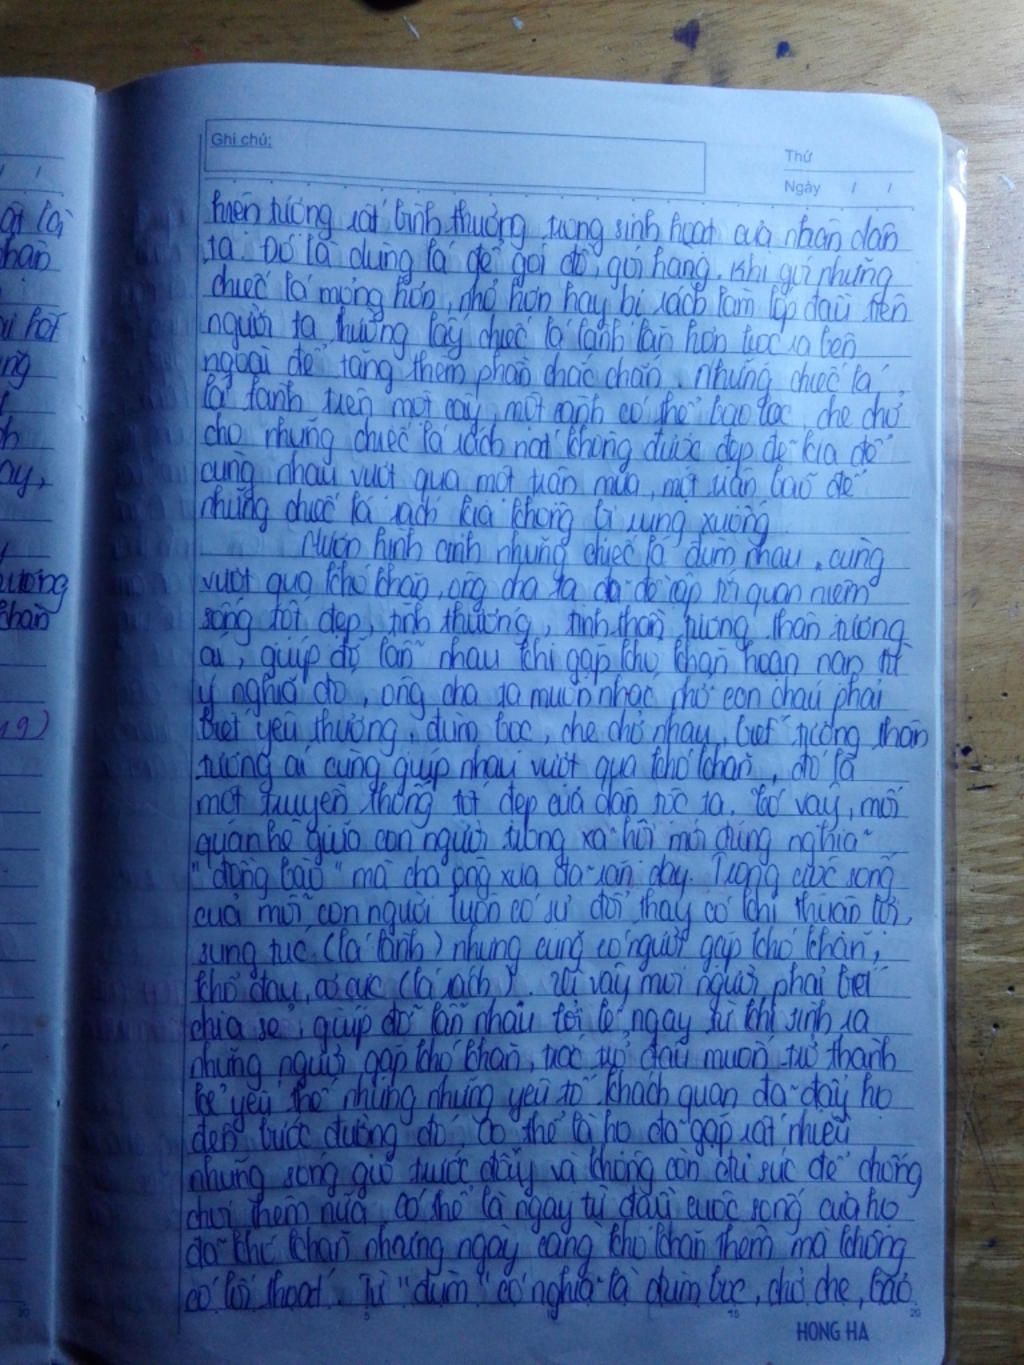 Ghi chú:
Thứ
Ngày / /
hiện tượng rất bình thường trong sinh hoạt của nhân dân
ta. Đó là dùng lá để gói đồ, gói hàng. Khi gói những
chiếc lá mỏng hơn, nhỏ hơn hay bị rách làm lớp đầu tiên
người ta thường lấy chiếc lá lành lặn hơn bọc ra bên
ngoài để tăng thêm phần chắc chắn. Những chiếc lá
lá lành trên một cây, một cành có thể bao bọc, che chở
cho những chiếc lá rách nát không được đẹp đẽ kia để
cùng nhau vượt qua một trận mưa, một trận bão để
những chiếc lá rách kia không bị rụng xuống
Mượn hình ảnh những chiếc lá đùm nhau, cùng
vượt qua khó khăn, ông cha ta đã đề cập tới quan niệm
sống tốt đẹp, tình thương, tinh thần tương thân tương
ái, giúp đỡ lẫn nhau khi gặp khó khăn hoạn nạn từ
ý nghĩa đó, ông cha ta muốn nhắc nhở con cháu phải
biết yêu thương, đùm bọc, che chở nhau, biết tương thân
tương ái cùng giúp nhau vượt qua khó khăn, đó là
một truyền thống tốt đẹp của dân tộc ta. Có vậy, mối
quan hệ giữa con người trong xã hội mới đúng nghĩa
"đồng bào" mà cha ông xưa đã răn dạy. Trong cuộc sống
của mỗi con người luôn có sự đổi thay có khi thuận lợi,
sung túc (lá lành) nhưng cũng có người gặp khó khăn,
khổ đau, cơ cực (lá rách). Vì vậy mọi người phải biết
chia sẻ, giúp đỡ lẫn nhau bởi lẽ, ngay từ khi sinh ra
những người gặp khó khăn, trắc trở đâu muốn trở thành
kẻ yếu thế nhưng những yếu tố khách quan đã đẩy họ
đến bước đường đó, có thể là họ đã gặp rất nhiều
những sóng gió trước đây và không còn đủ sức để chống
chọi thêm nữa. Có thể là ngay từ đầu cuộc sống của họ
đã khó khăn nhưng ngày càng khó khăn thêm mà không
có lối thoát. Từ "đùm" có nghĩa là đùm bọc, chở che, bao
HONG HA